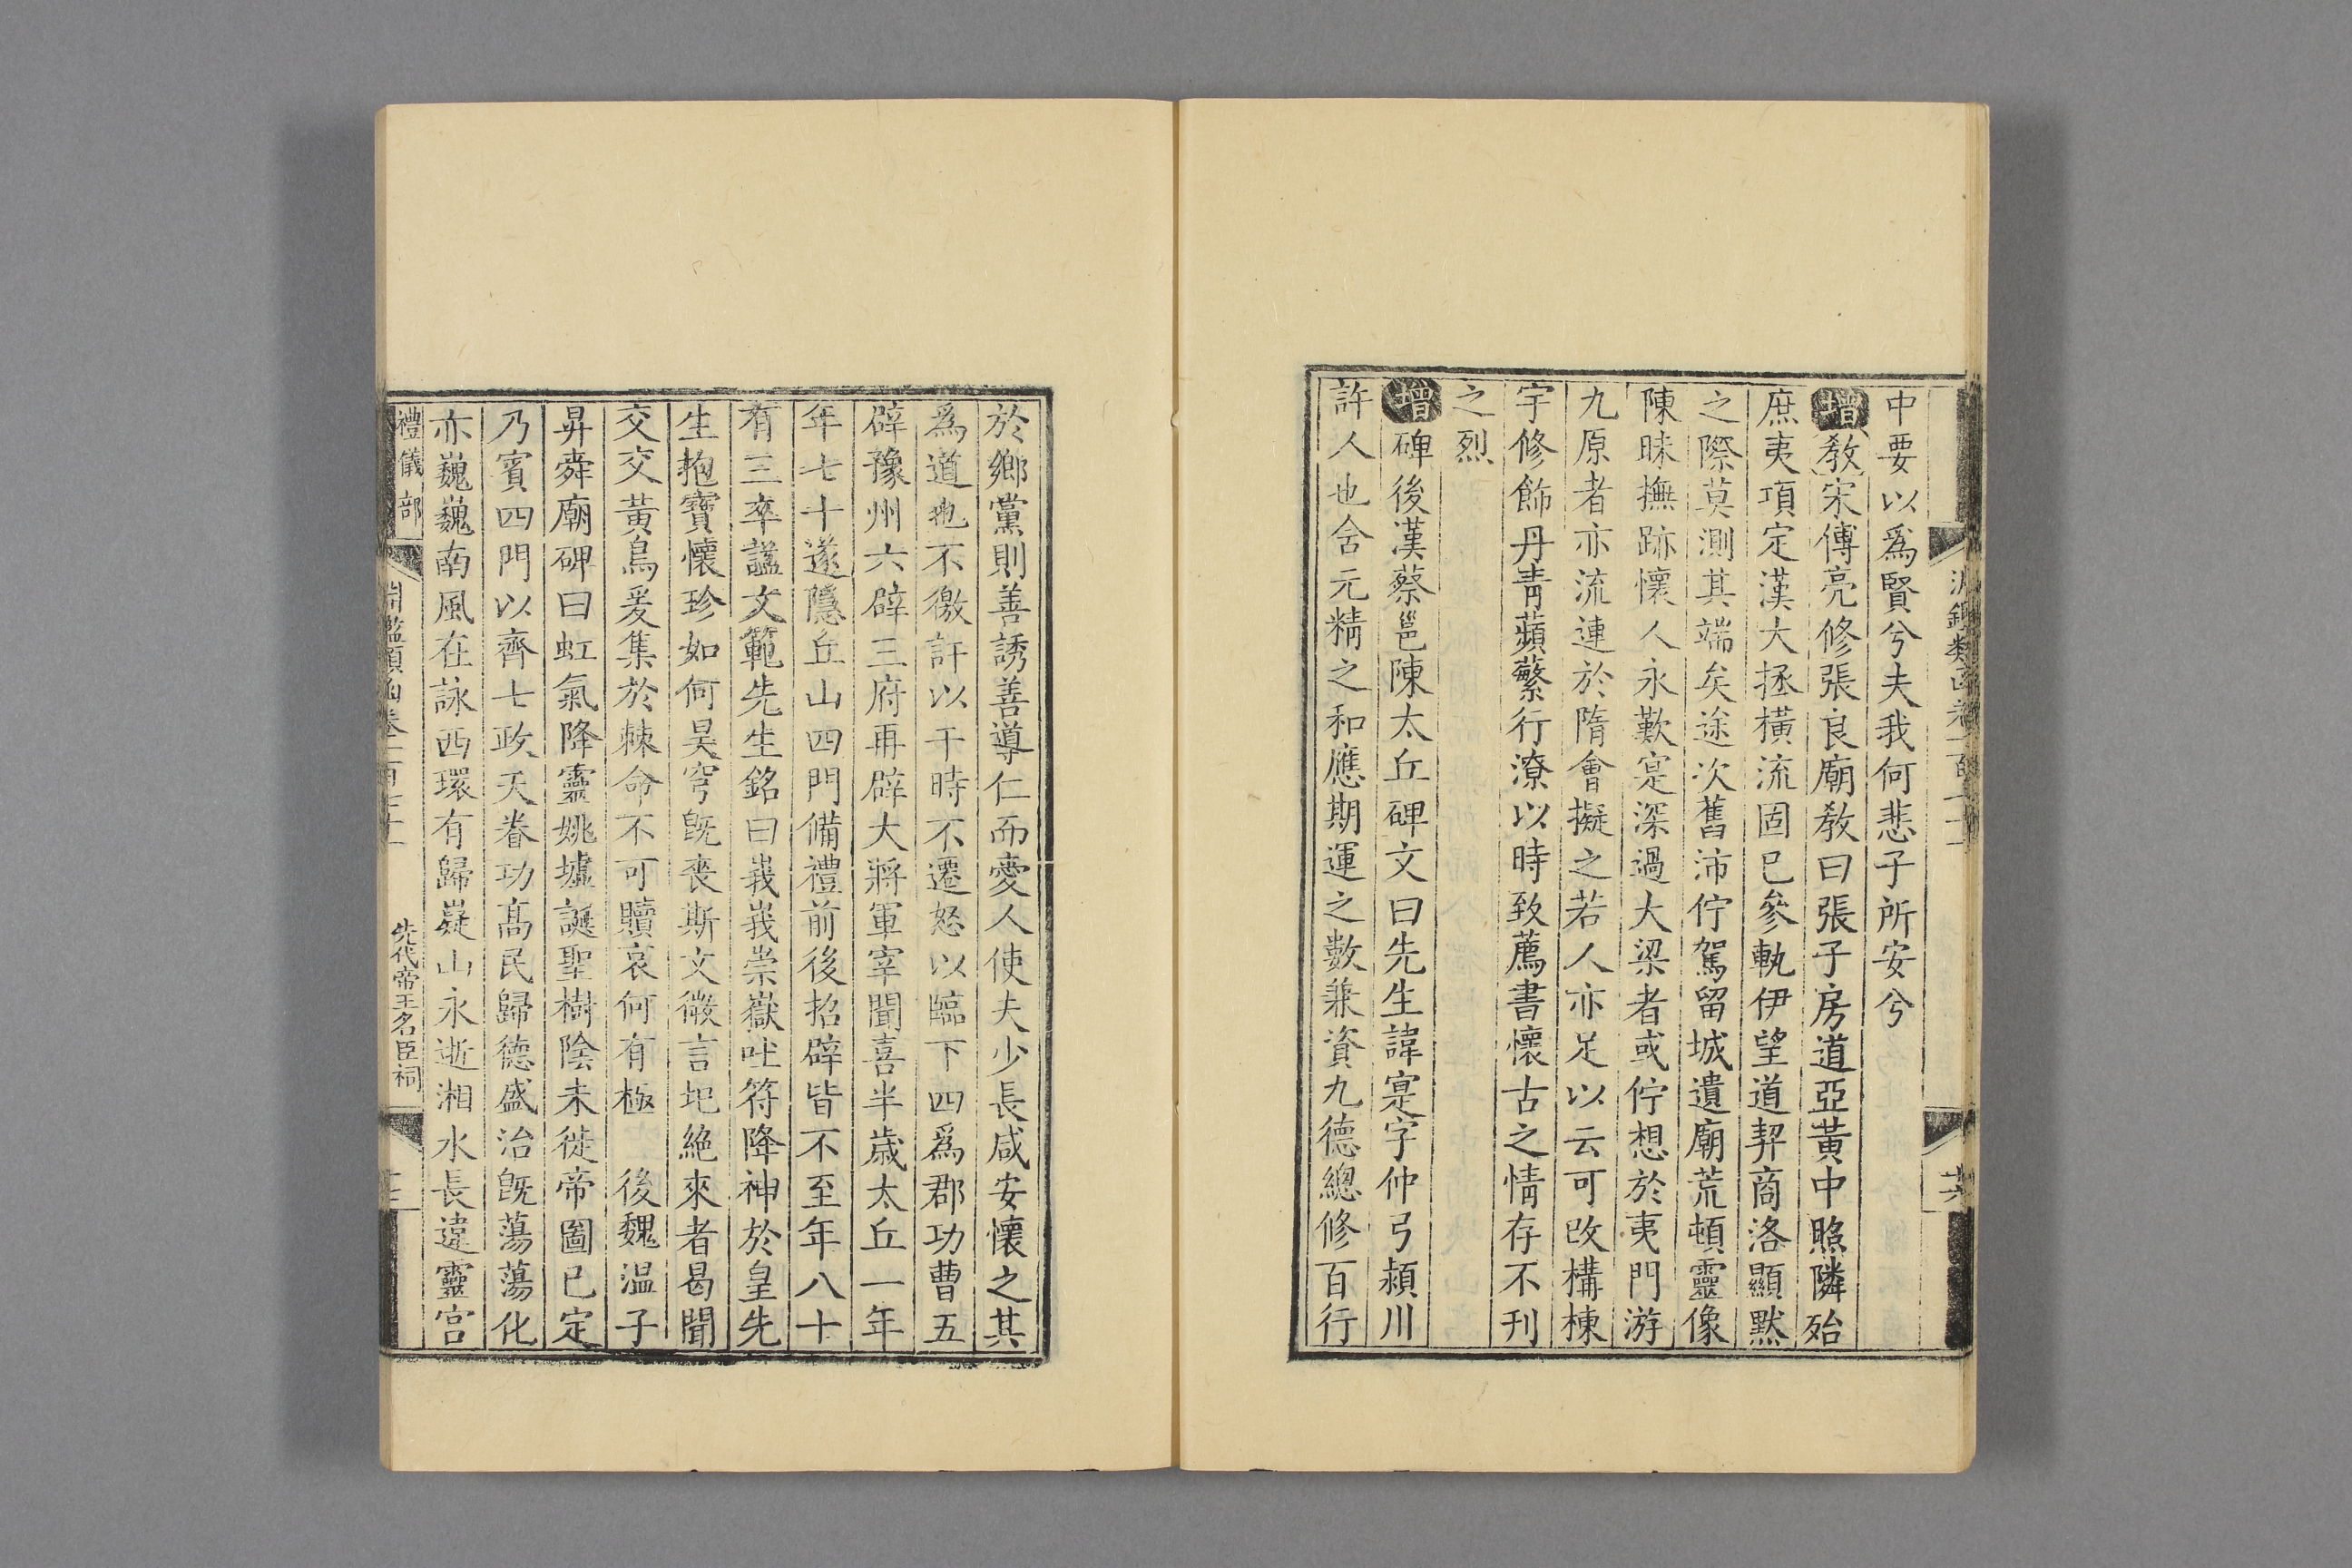 中要以爲賢兮夫我何悲子所安兮
增教宋傅亮修張良廟教曰張子房道亞黃中照隣殆
庶夷項定漢大拯橫流固已參軌伊望道契商洛顯黙
之際莫測其端矣途次舊沛佇駕留城遺廟荒頓靈像
陳昧撫跡懷人永歎寔深過大梁者或佇想於夷門游
九原者亦流連於隋會擬之若人亦足以云可改構棟
宇修飾丹青蘋蘩行潦以時致薦書懷古之情存不刊
之烈
增碑後漢蔡邕陳太丘碑文曰先生諱寔字仲弓潁川
許人也含元精之和應期運之數兼資九德總修百行
於鄉黨則善誘善導仁而愛人使夫少長咸安懷之其
爲道也不徼訐以干時不遷怒以臨下四爲郡功曹五
辟豫州六辟三府再辟大將軍宰聞喜半歲太丘一年
年七十遂隱丘山四門備禮前後招辟皆不至年八十
有三卒諡文範先生銘曰峩峩崇嶽吐符降神於皇先
生抱寶懷珍如何昊穹旣喪斯文微言圯絶來者曷聞
交交黃鳥爰集於棘命不可贖哀何有極　後魏溫子
昇舜廟碑曰虹氣降靈姚墟誕聖樹陰未徙帝圖已定
乃賓四門以齊七政天眷功高民歸德盛治旣蕩蕩化
亦巍巍南風在詠西環有歸嶷山永逝湘水長違靈宫
禮儀部
淵鑑類函卷一百
先代帝王名臣祠